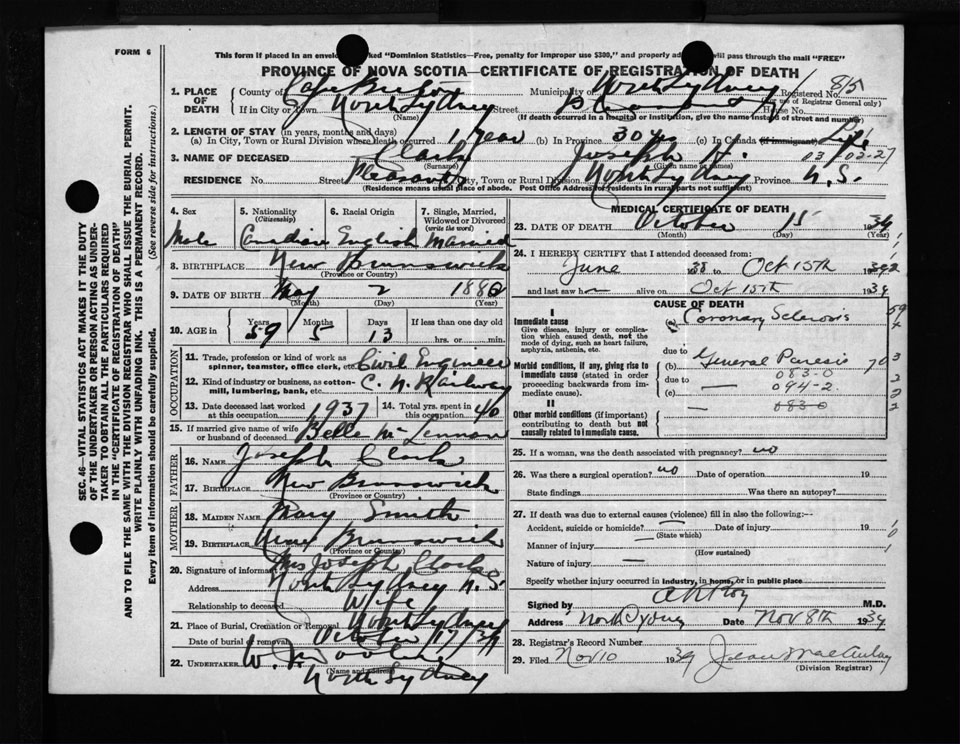 FORM 6
This form if placed in an envelo ked "Dominion Statistics—Free, penalty for improper use $300," and properly ad will pass through the mail "FREE"
PROVINCE OF NOVA SCOTIA—CERTIFICATE OF REGISTRATION OF DEATH
1. PLACE OF DEATH County of Cape Breton Municipality of North Sydney Registered No. 815
(For use of Registrar General only)
If in City or Town North Sydney Street House No.
(Name) (If death occurred in a hospital or institution, give the name instead of street and number)
2. LENGTH OF STAY (in years, months and days)
(a) In City, Town or Rural Division where death occurred 1 year (b) In Province 30 yrs (c) In Canada (if immigrant) Life
3. NAME OF DECEASED Clark Joseph H. 03/02-27
(Surname) (Given name or names)
RESIDENCE No. Street Pleasant City, Town or Rural Division North Sydney Province N.S.
(Residence means usual place of abode. Post Office Address for residents in rural parts not sufficient.)
4. Sex 5. Nationality (Citizenship) 6. Racial Origin 7. Single, Married, Widowed or Divorced (write the word)
Male Canadian English Married
8. BIRTHPLACE New Brunswick
(Province or Country)
9. DATE OF BIRTH May 2 1880
(Month) (Day) (Year)
10. AGE in Years Months Days If less than one day old
59 5 13 hrs. or min.
OCCUPATION
11. Trade, profession or kind of work as spinner, teamster, office clerk, etc. Civil Engineer
12. Kind of industry or business, as cotton-mill, lumbering, bank, etc. C. N. Railway
13. Date deceased last worked at this occupation 1937 14. Total yrs. spent in this occupation 40
15. If married give name of wife or husband of deceased Belle McLennan
FATHER
16. NAME Joseph Clark
17. BIRTHPLACE New Brunswick
(Province or Country)
MOTHER
18. MAIDEN NAME Mary Smith
19. BIRTHPLACE New Brunswick
(Province or Country)
20. Signature of informant Mrs Joseph Clark
Address North Sydney N.S.
Relationship to deceased Wife
21. Place of Burial, Cremation or Removal North Sydney
Date of burial or removal October 17/39
22. UNDERTAKER W.
(Name and address)
North Sydney
MEDICAL CERTIFICATE OF DEATH
23. DATE OF DEATH October 15 1939
(Month) (Day) (Year)
24. I HEREBY CERTIFY that I attended deceased from:
June 38 to Oct 15th 1939
and last saw h alive on Oct 15th 1939
CAUSE OF DEATH
I
Immediate cause (a) Coronary Sclerosis
Give disease, injury or complication which caused death, not the mode of dying, such as heart failure, asphyxia, asthenia, etc.
due to
Morbid conditions, if any, giving rise to immediate cause (stated in order proceeding backwards from immediate cause). (b) General Paresis
083-0
due to 094-2
(c)
II
083-0
Other morbid conditions (if important) contributing to death but not causally related to immediate cause.
25. If a woman, was the death associated with pregnancy? no
26. Was there a surgical operation? no Date of operation 19
State findings Was there an autopsy?
27. If death was due to external causes (violence) fill in also the following:—
Accident, suicide or homicide? Date of injury 19
(State which)
Manner of injury
(How sustained)
Nature of injury
Specify whether injury occurred in industry, in home, or in public place
Signed by M.D.
Address North Sydney Date Nov 8th 1939
28. Registrar's Record Number
29. Filed Nov 10 1939 Jean MacAulay
(Division Registrar)
SEC. 46—VITAL STATISTICS ACT MAKES IT THE DUTY
OF THE UNDERTAKER OR PERSON ACTING AS UNDER-
TAKER TO OBTAIN ALL THE PARTICULARS REQUIRED
IN THE "CERTIFICATE OF REGISTRATION OF DEATH" AND TO FILE THE SAME WITH THE DIVISION REGISTRAR WHO SHALL ISSUE THE BURIAL PERMIT.
WRITE PLAINLY WITH UNFADING INK. THIS IS A PERMANENT RECORD.
Every item of information should be carefully supplied. (See reverse side for instructions.)